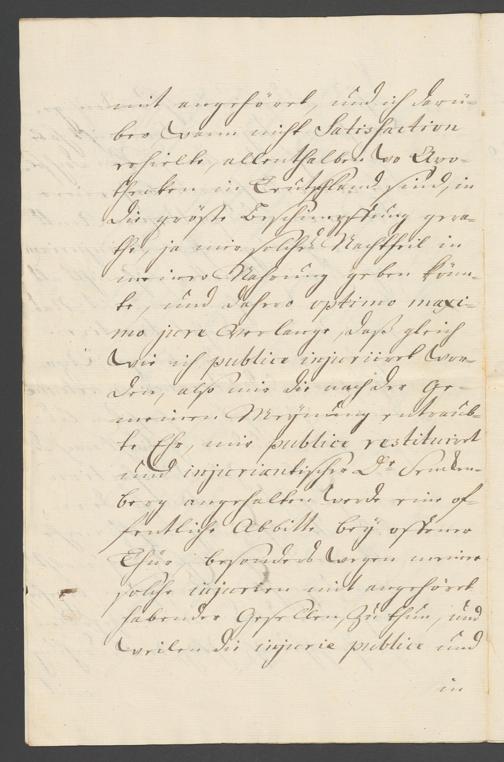 mit angehöret, und ich darü-
ber wann nicht Satisfaction
erhielte, allenthalben wo Apo-
thecken in Teutschland sind, in
die gröste Beschimpffung gera-
the, ja mir solches Nachtheil in
meiner Nahrung geben könn-
te, und dahero optimo maxi-
mo jure verlange, daß gleich
wie ich publice injuriiret wor-
den, also mir die nach der ge-
meinen Meynung entraub-
te Ehr, mir publice restituiret
und injuriantischer Dr Sencken-
berg angehalten werde eine of-
fentliche Abbitte bey offener
Thür besonders wegen meiner
solche injurien mit angehöret
habender Gesellen, zu thun, und
weilen die injurie publice und
in